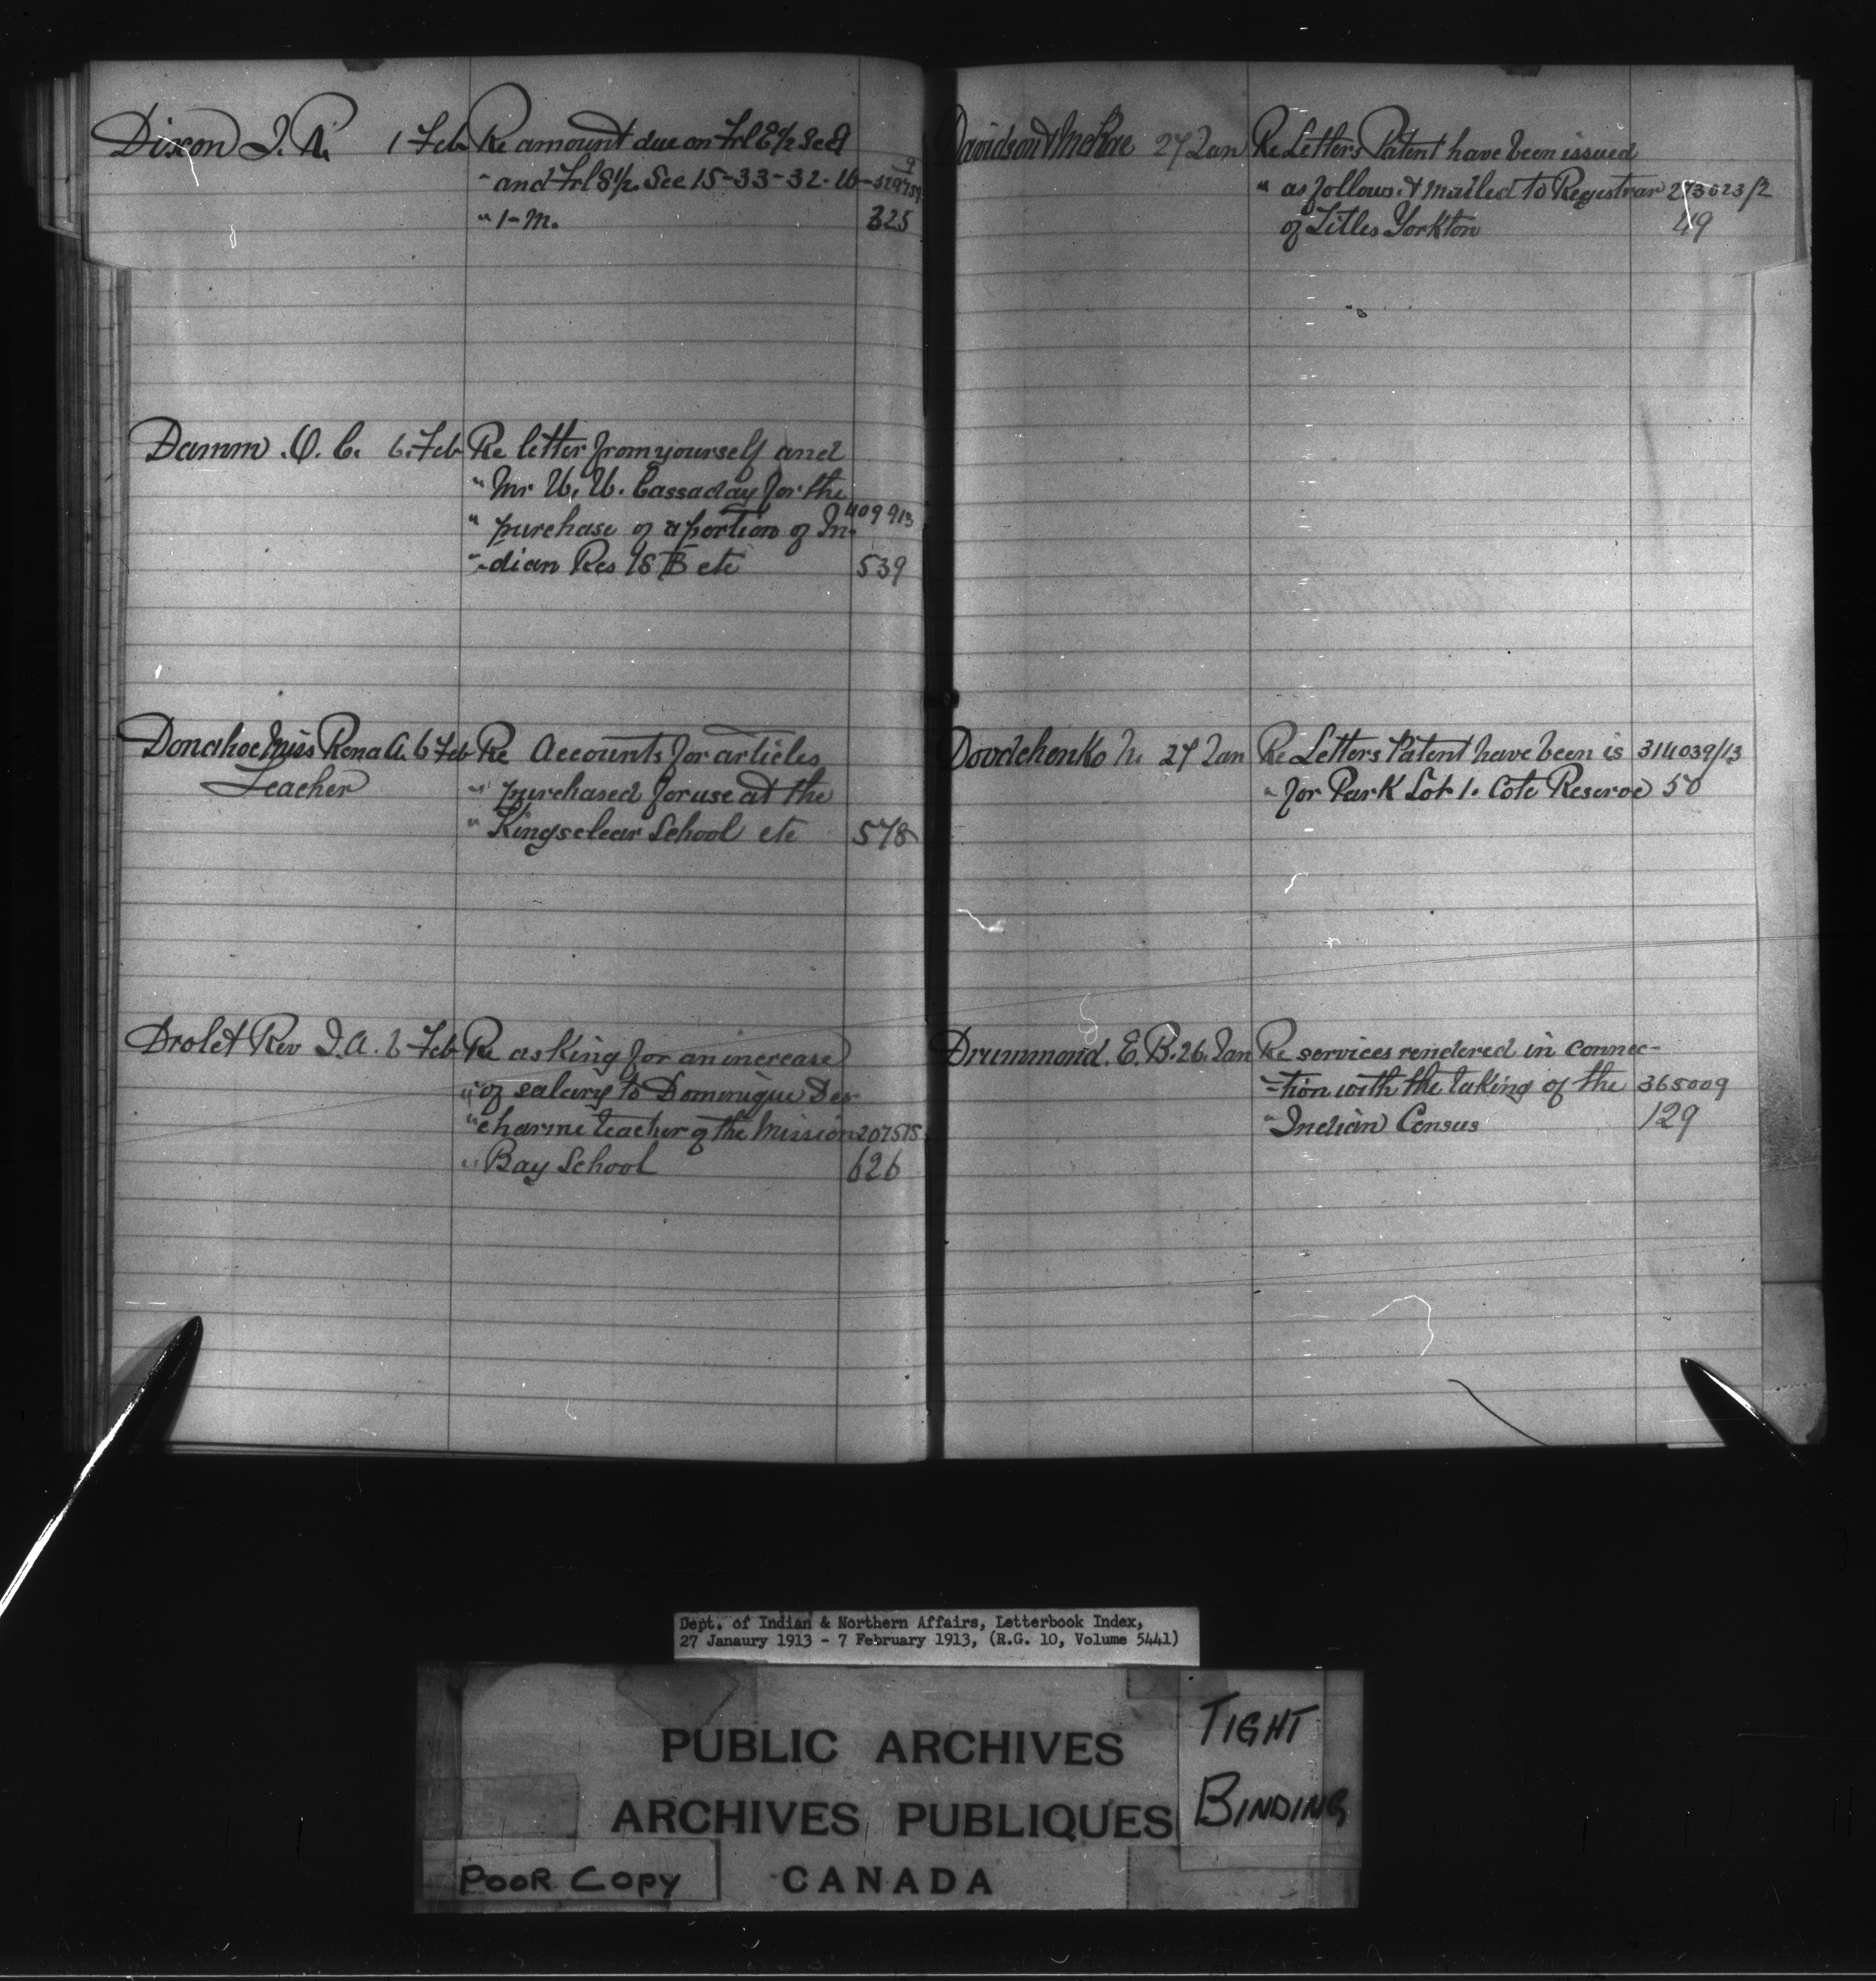 Dixon J. R. 1 Feb Re amount due on Frl E½ Sec 9
" and Frl S½ Sec 15-33-32-W- 329759
" 1-M. 325
Damm O. C. 6. Feb Re letter from yourself and
" Mr U. U. Cassaday for the
" purchase of a portion of In- 409913
"-dian Res 18 B etc 539
Donahoe Miss Rona A. 6 Feb Re Accounts for articles
Teacher " purchased for use at the
" Kingsclear School etc 578
Drolet Rev J. A. 6 Feb Re asking for an increase
" of salary to Dominique Des-
" charme teacher of the Mission 207575
" Bay School 626
Davidson & McRae 27 Jan Re Letters Patent have been issued
" as follows & mailed to Registrar 273023/2
of Titles Yorkton 49
Dovdchenko N. 27 Jan Re Letters Patent have been is 314039/13
" for Park Lot 1. Cote Reserve 50
Drummond. E. B. 26. Jan Re services rendered in connec-
-tion with the taking of the 365009
" Indian Census 129
Dept. of Indian & Northern Affairs, Letterbook Index,
27 Janaury 1913 - 7 February 1913, (R.G. 10, Volume 5441)
PUBLIC ARCHIVES
ARCHIVES PUBLIQUES
CANADA
TIGHT
BINDING
POOR COPY